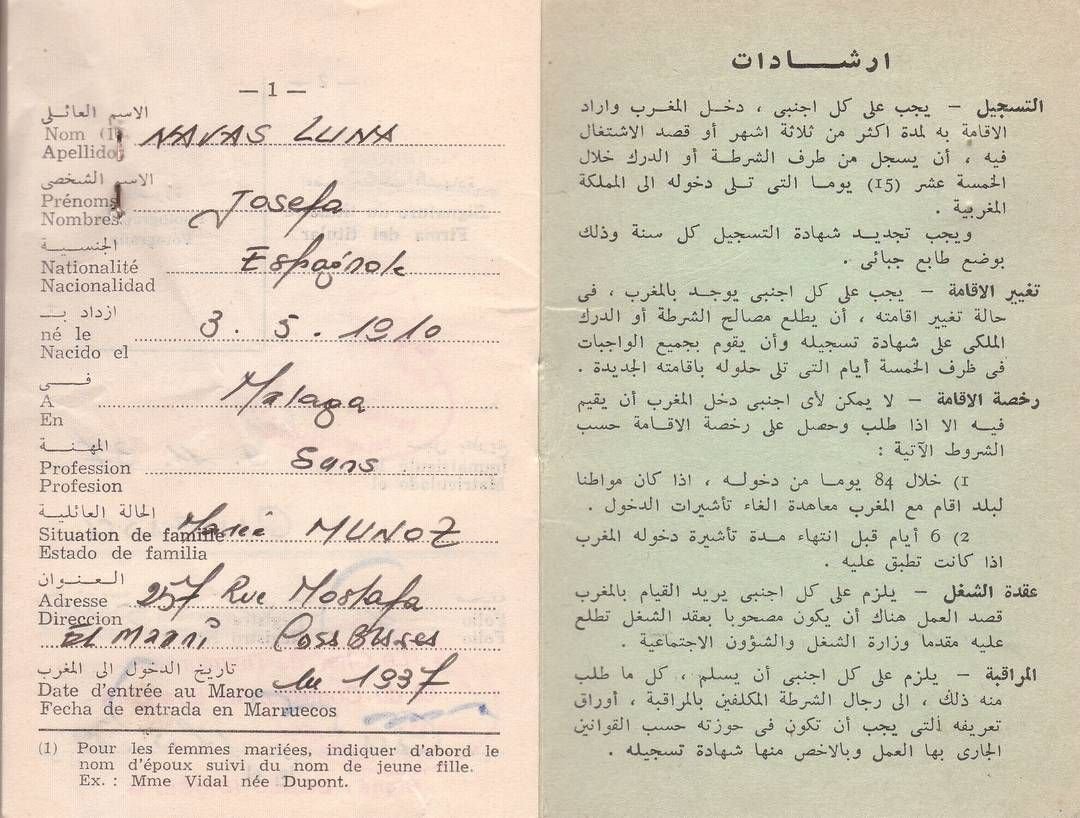 — 1 —
الاسم العائلى
Nom (1) NAVAS LUNA
Apellido
الاسم الشخصى
Prénoms Josefa
Nombres
الجنسية
Nationalité Espagnole
Nacionalidad
ازداد بـ
né le 3. 5. 1910
Nacido el
فى
A Malaga
En
المهنة
Profession Sans
Profesion
الحالة العائلية
Situation de famille Mariée MUNOZ
Estado de familia
العنوان
Adresse 257 Rue Mostafa
Direccion
El Maani
تاريخ الدخول الى المغرب
Date d'entrée au Maroc en 1937
Fecha de entrada en Marruecos
(1) Pour les femmes mariées, indiquer d'abord le
nom d'époux suivi du nom de jeune fille.
Ex. : Mme Vidal née Dupont.
ارشادات
التسجيل – يجب على كل اجنبى ، دخل المغرب واراد
الاقامة به لمدة اكثر من ثلاثة اشهر أو قصد الاشتغال
فيه ، أن يسجل من طرف الشرطة أو الدرك خلال
الخمسة عشر (15) يوما التى تلى دخوله الى المملكة
المغربية .
ويجب تجديد شهادة التسجيل كل سنة وذلك
بوضع طابع جبائى .
تغيير الاقامة – يجب على كل اجنبى يوجد بالمغرب ، فى
حالة تغيير اقامته ، أن يطلع مصالح الشرطة أو الدرك
الملكى على شهادة تسجيله وأن يقوم بجميع الواجبات
فى ظرف الخمسة أيام التى تلى حلوله باقامته الجديدة .
رخصة الاقامة – لا يمكن لأى اجنبى دخل المغرب أن يقيم
فيه الا اذا طلب وحصل على رخصة الاقامة حسب
الشروط الآتية :
1) خلال 84 يوما من دخوله ، اذا كان مواطنا
لبلد اقام مع المغرب معاهدة الغاء تأشيرات الدخول .
2) 6 أيام قبل انتهاء مدة تأشيرة دخوله المغرب
اذا كانت تطبق عليه .
عقدة الشغل – يلزم على كل اجنبى يريد القيام بالمغرب
قصد العمل هناك أن يكون مصحوبا بعقد الشغل تطلع
عليه مقدما وزارة الشغل والشؤون الاجتماعية .
المراقبة – يلزم على كل اجنبى أن يسلم ، كل ما طلب
منه ذلك ، الى رجال الشرطة المكلفين بالمراقبة ، أوراق
تعريفه التى يجب أن تكون فى حوزته حسب القوانين
الجارى بها العمل وبالاخص منها شهادة تسجيله .